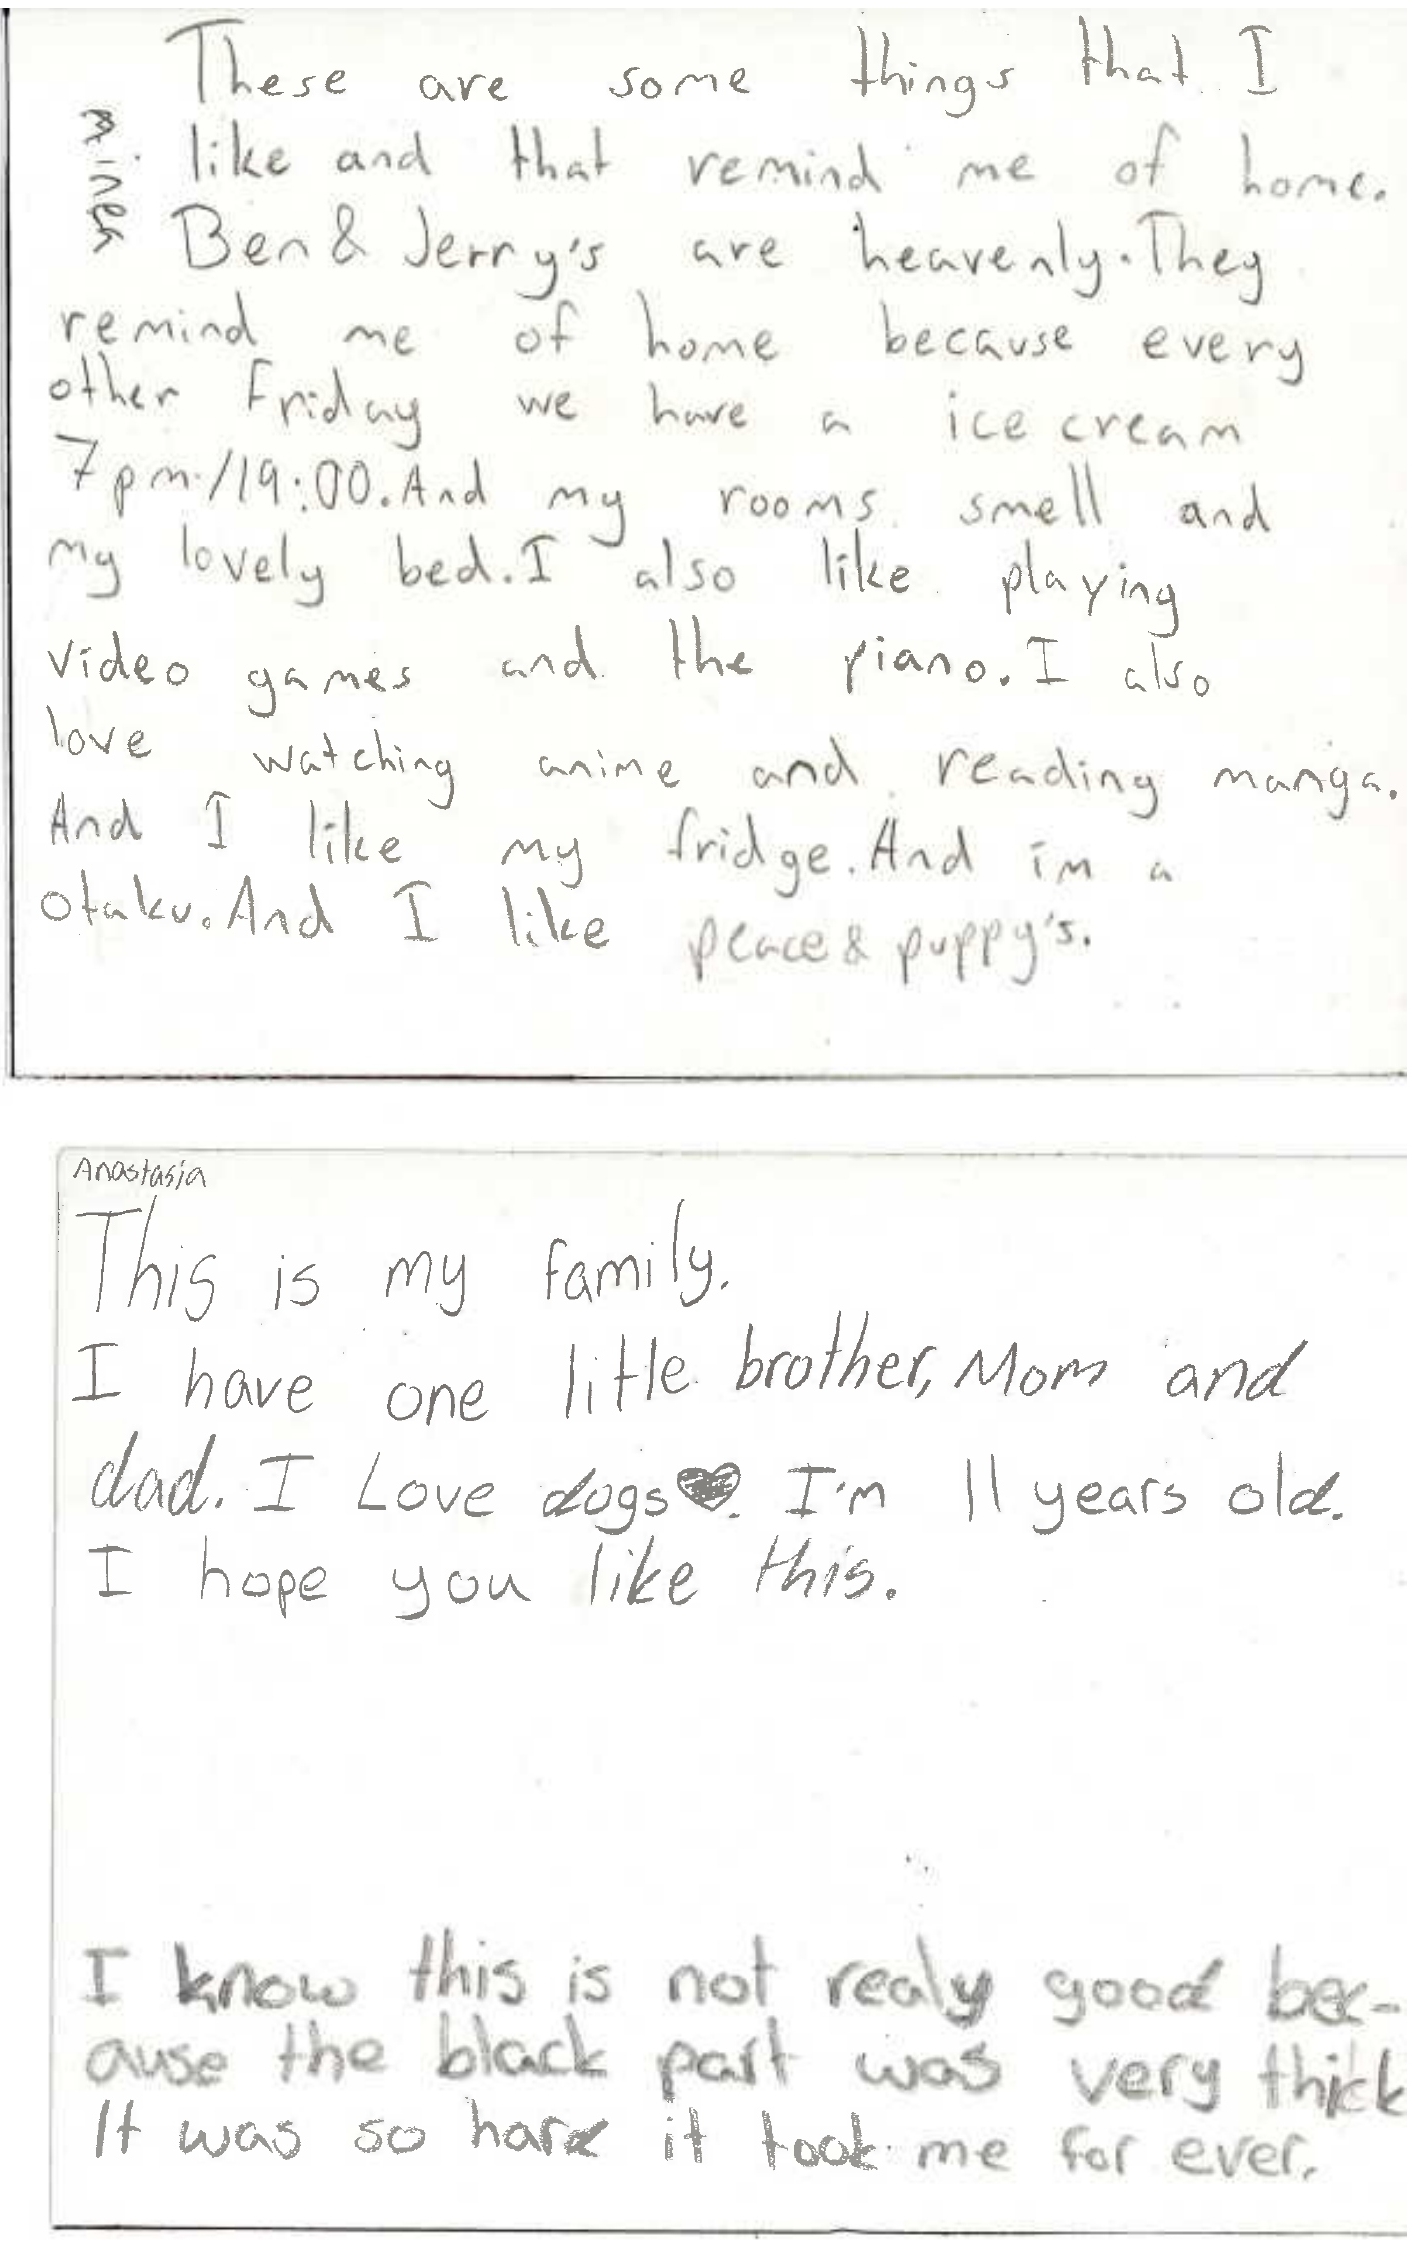 mineh
These are some things that I
like and that remind me of home.
Ben & Jerry's are heavenly. They
remind me of home because every
other Friday we have a ice cream
7pm/19:00. And my rooms smell and
my lovely bed. I also like playing
video games and the piano. I also
love watching anime and reading manga.
And I like my fridge. And im a
otaku. And I like peace & puppy's.
Anastasia
This is my family.
I have one little brother, Mom and
dad. I Love dogs♥. I'm 11 years old.
I hope you like this.
I know this is not realy good bec-
ause the black part was very thick
It was so hard it took me for ever.